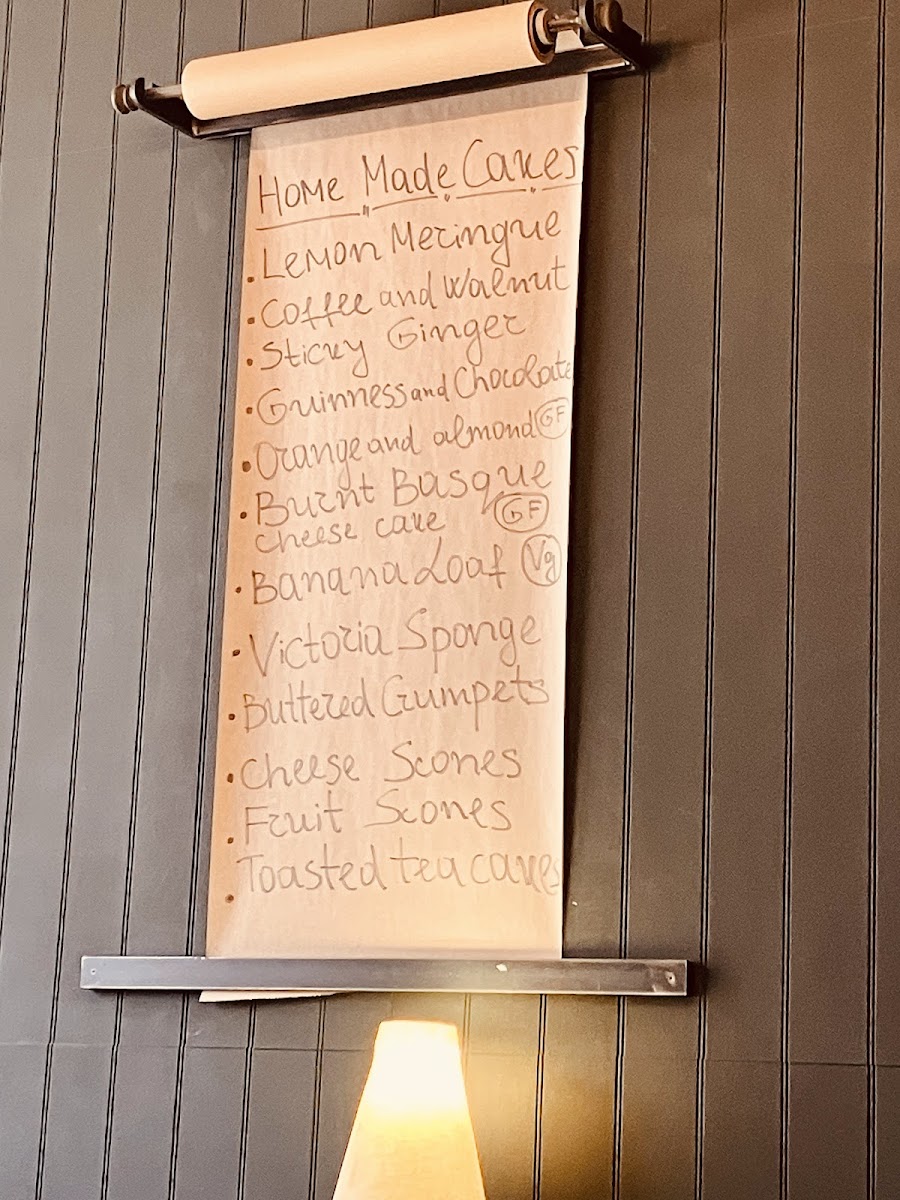 Home Made Cakes
• Lemon Meringue
• Coffee and Walnut
• Sticky Ginger
• Guinness and Chocolate
• Orange and almond GF
• Burnt Basque
cheese cake GF
• Banana Loaf Vg
• Victoria Sponge
• Buttered Crumpets
• Cheese Scones
• Fruit Scones
• Toasted tea cakes